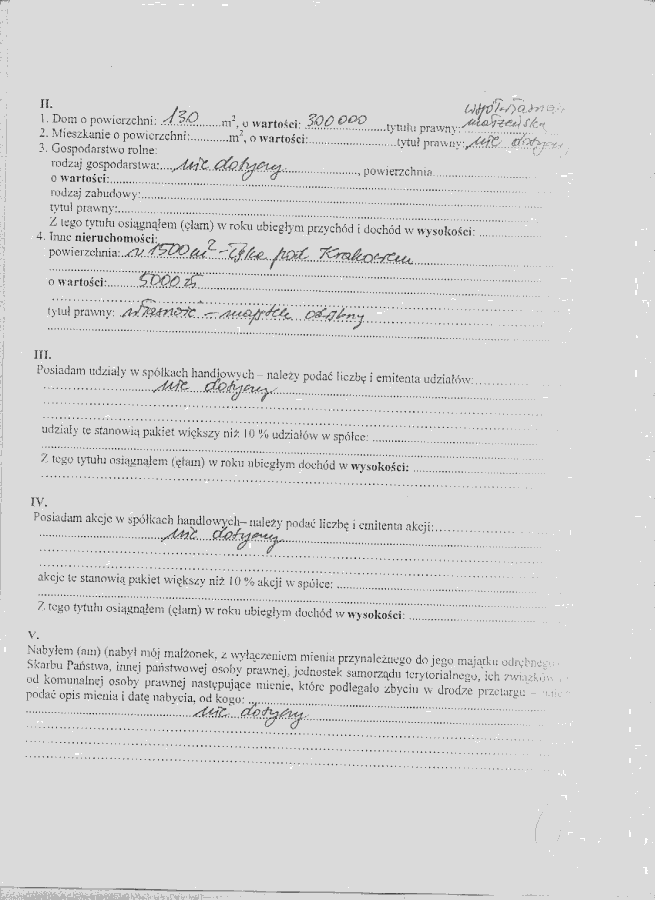 II.
1. Dom o powierzchni: 130 m², o wartości: 300 000 tytułu prawny: współwłasność
małżeńska
2. Mieszkanie o powierzchni: m², o wartości: tytuł prawny: nie dotyczy
3. Gospodarstwo rolne:
rodzaj gospodarstwa: nie dotyczy, powierzchnia
o wartości:
rodzaj zabudowy:
tytuł prawny:
Z tego tytułu osiągnąłem (ęłam) w roku ubiegłym przychód i dochód w wysokości:
4. Inne nieruchomości:
powierzchnia: 1500 m² - pod Krakowem
o wartości: 5000 zł
tytuł prawny: własność – majątek odrębny
III.
Posiadam udziały w spółkach handlowych – należy podać liczbę i emitenta udziałów:
nie dotyczy
udziały te stanowią pakiet większy niż 10 % udziałów w spółce:
Z tego tytułu osiągnąłem (ęłam) w roku ubiegłym dochód w wysokości:
IV.
Posiadam akcje w spółkach handlowych– należy podać liczbę i emitenta akcji:
nie dotyczy
akcje te stanowią pakiet większy niż 10 % akcji w spółce:
Z tego tytułu osiągnąłem (ęłam) w roku ubiegłym dochód w wysokości:
V.
Nabyłem (am) (nabył mój małżonek, z wyłączeniem mienia przynależnego do jego majątku odrębnego
Skarbu Państwa, innej państwowej osoby prawnej, jednostek samorządu terytorialnego, ich związków
od komunalnej osoby prawnej następujące mienie, które podlegało zbyciu w drodze przetargu –
podać opis mienia i datę nabycia, od kogo:
nie dotyczy